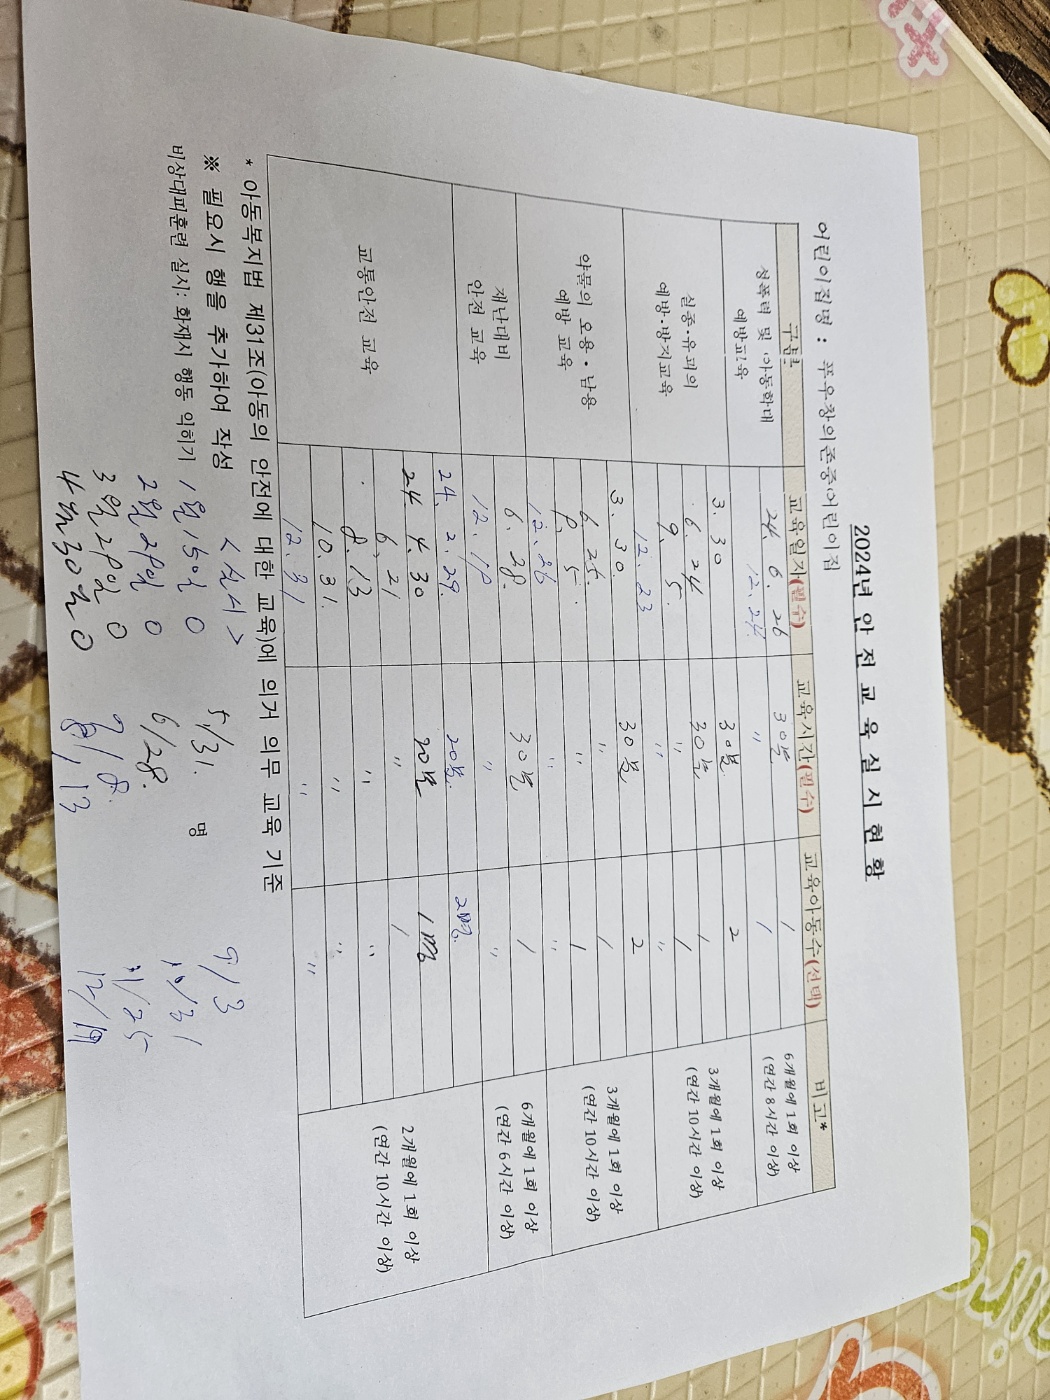 2024년 안 전 교 육 실 시 현 황
어린이집명 : 푸우창의존중어린이집
구분 교육일자(필수) 교육시간(필수) 교육아동수(선택) 비고*
성폭력 및 아동학대 예방교육 24. 6. 26 30분 1 6개월에 1회 이상 (연간 8시간 이상)
12. 24. " 1
실종·유괴의 예방·방지교육 3. 30 30분. 2 3개월에 1회 이상 (연간 10시간 이상)
6. 24 30분. 1
9. 5. " 1
12. 23 " "
약물의 오용·남용 예방 교육 3. 30. 30분. 2 3개월에 1회 이상 (연간 10시간 이상)
6. 25. " 1
9. 5. " 1
12. 26 " "
재난대비 안전 교육 6. 28. 30분 1 6개월에 1회 이상 (연간 6시간 이상)
12. 19 " "
교통안전 교육 24. 2. 29. 20분. 2명. 2개월에 1회 이상 (연간 10시간 이상)
24. 4. 30 20분 1명
6. 21 " 1
8. 13 " "
10. 31. " "
12. 31 " "
* 아동복지법 제31조(아동의 안전에 대한 교육)에 의거 의무 교육 기준
※ 필요시 행을 추가하여 작성 <실시>
비상대피훈련 실시: 화재시 행동 익히기 1월 15일 0 5/31. 명 9/3
2월 29일 0 6/28. 10/31
3월 29일 0 11/25
4월 30일 0 8/13 12/19